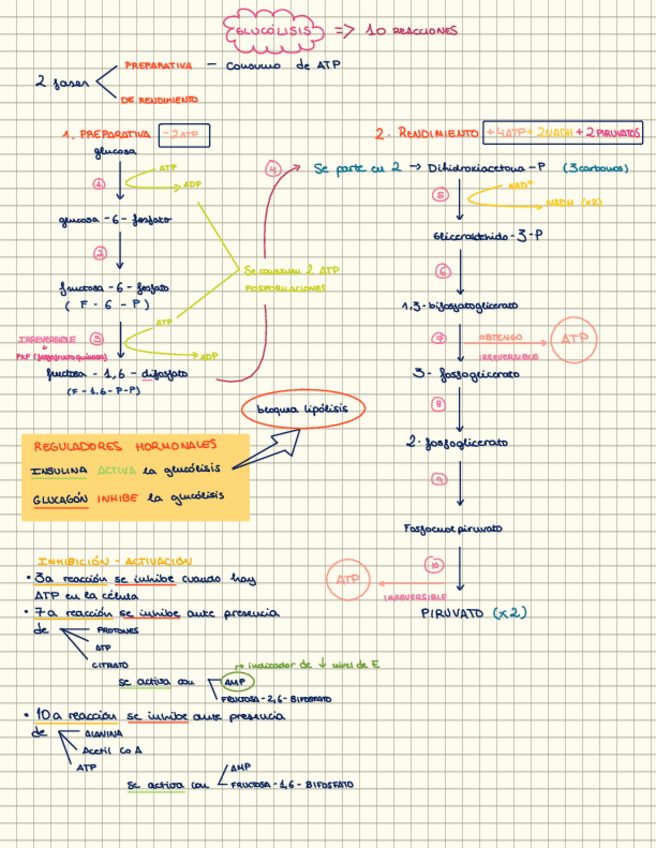 GLUCÓLISIS => 10 REACCIONES
2 fases
PREPARATIVA - Consumo de ATP
DE RENDIMIENTO
1. PREPARATIVA -2ATP
glucosa
1
ATP
ADP
glucosa-6-fosfato
2
fructosa-6-fosfato
(F-6-P)
Se consumen 2 ATP
FOSFORILACIONES
IRREVERSIBLE 3
PKF (fosfofructoquinasa)
ATP
ADP
fructosa-1,6-difosfato
(F-1.6-P-P)
2. RENDIMIENTO +4ATP+2NADH+2PIRUVATOS
4 Se parte en 2 → Dihidroxiacetona-P (3carbonos)
5
NAD+
NADH (x2)
Gliceraldehido-3-P
6
1.3-bifosfatoglicerato
7 OBTENGO
IRREVERSIBLE
ATP
3-fosfoglicerato
8
2-fosfoglicerato
9
Fosfoenolpiruvato
10
ATP
IRREVERSIBLE
PIRUVATO (x2)
bloquea lipólisis
REGULADORES HORMONALES
INSULINA ACTIVA la glucólisis
GLUCAGÓN INHIBE la glucólisis
INHIBICIÓN - ACTIVACIÓN
• 3a reacción se inhibe cuando hay
ATP en la célula
• 7a reacción se inhibe ante presencia
de
PROTONES
ATP
CITRATO
→ indicador de ↓ nivel de E
se activa con AMP
FRUCTOSA-2,6-BIFOSFATO
• 10a reacción se inhibe ante presencia
de ALANINA
Acetil CoA
ATP
AMP
se activa con FRUCTOSA-1,6-BIFOSFATO